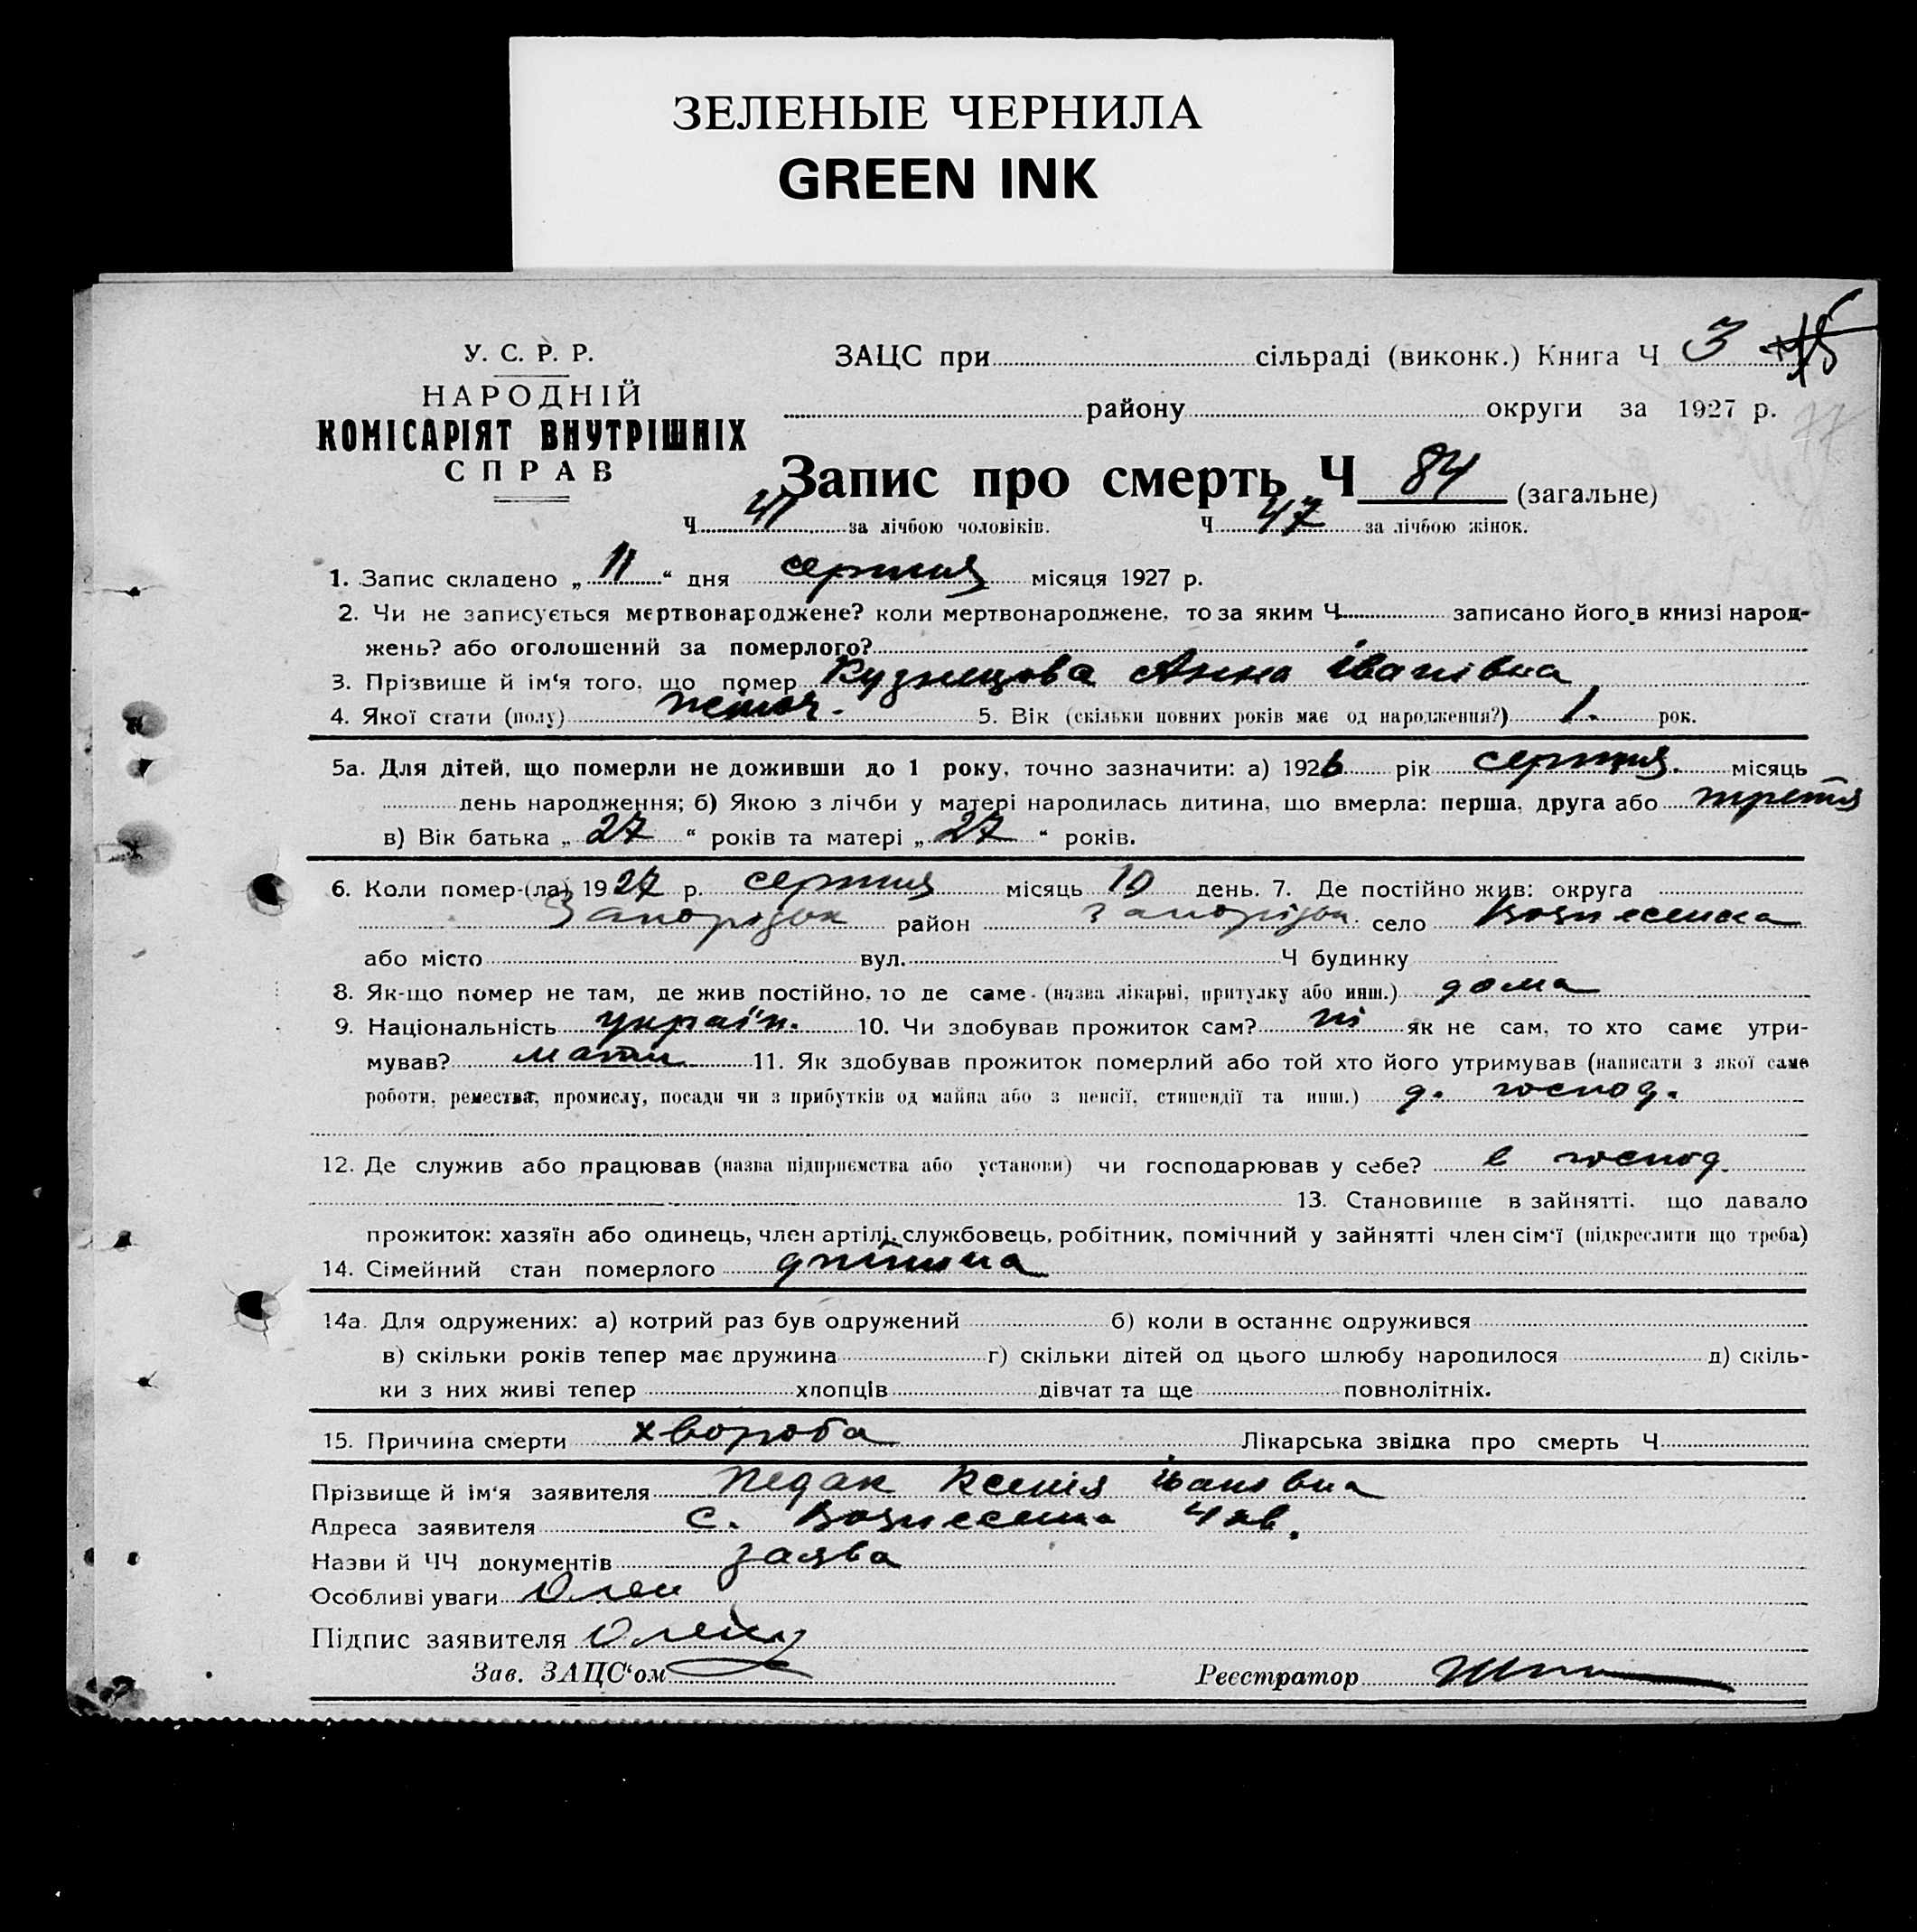 ЗЕЛЕНЫЕ ЧЕРНИЛА
GREEN INK
У. С. Р. Р.
НАРОДНІЙ
КОМІСАРІЯТ ВНУТРІШНІХ
СПРАВ
ЗАЦС при сільраді (виконк.) Книга Ч 3
району округи за 1927 р. 77
Запис про смерть Ч 84 (загальне)
Ч 41 за лічбою чоловіків. Ч 47 за лічбою жінок.
1. Запис складено „ 11 “ дня серпня місяця 1927 р.
2. Чи не записується мертвонароджене? коли мертвонароджене, то за яким Ч записано його в книзі народ-
жень? або оголошений за померлого?
3. Прізвище й ім‘я того, що помер Кузнецова Анна Івановна
4. Якої стати (полу) жіноч. 5. Вік (скільки повних років має од народження?) 1. рок.
5а. Для дітей, що померли не доживши до 1 року, точно зазначити: а) 1926 рік серпня. місяць
день народження; б) Якою з лічби у матері народилась дитина, що вмерла: перша, друга або третя
в) Вік батька „ 27 “ років та матері „ 27 “ років.
6. Коли помер-(ла) 1927 р. серпня місяць 10 день. 7. Де постійно жив: округа
Запорізьк район Запорізьк. село Вознесенка
або місто вул. Ч будинку
8. Як-що помер не там, де жив постійно, то де саме (назва лікарні, притулку або инш.) дома
9. Національність україн. 10. Чи здобував прожиток сам? ні як не сам, то хто саме утри-
мував? мати 11. Як здобував прожиток померлий або той хто його утримував (написати з якої саме
роботи, ремества, промислу, посади чи з прибутків од майна або з пенсії, стипендії та инш.) д. господ.
12. Де служив або працював (назва підприємства або установи) чи господарював у себе? в господ.
13. Становище в зайнятті, що давало
прожиток: хазяїн або одинець, член артілі, службовець, робітник, помічний у зайнятті член сім‘ї (підкреслити що треба)
14. Сімейний стан померлого дитина
14а. Для одружених: а) котрий раз був одружений б) коли в останнє одружився
в) скільки років тепер має дружина г) скільки дітей од цього шлюбу народилося д) скіль-
ки з них живі тепер хлопців дівчат та ще повнолітніх.
15. Причина смерти хвороба Лікарська звідка про смерть Ч
Прізвище й ім‘я заявителя Педак Ксенія Івановна
Адреса заявителя с. Вознесенка 4 кв.
Назви й ЧЧ документів заява
Особливі уваги Олен
Підпис заявителя
Зав. ЗАЦС‘ом Реєстратор